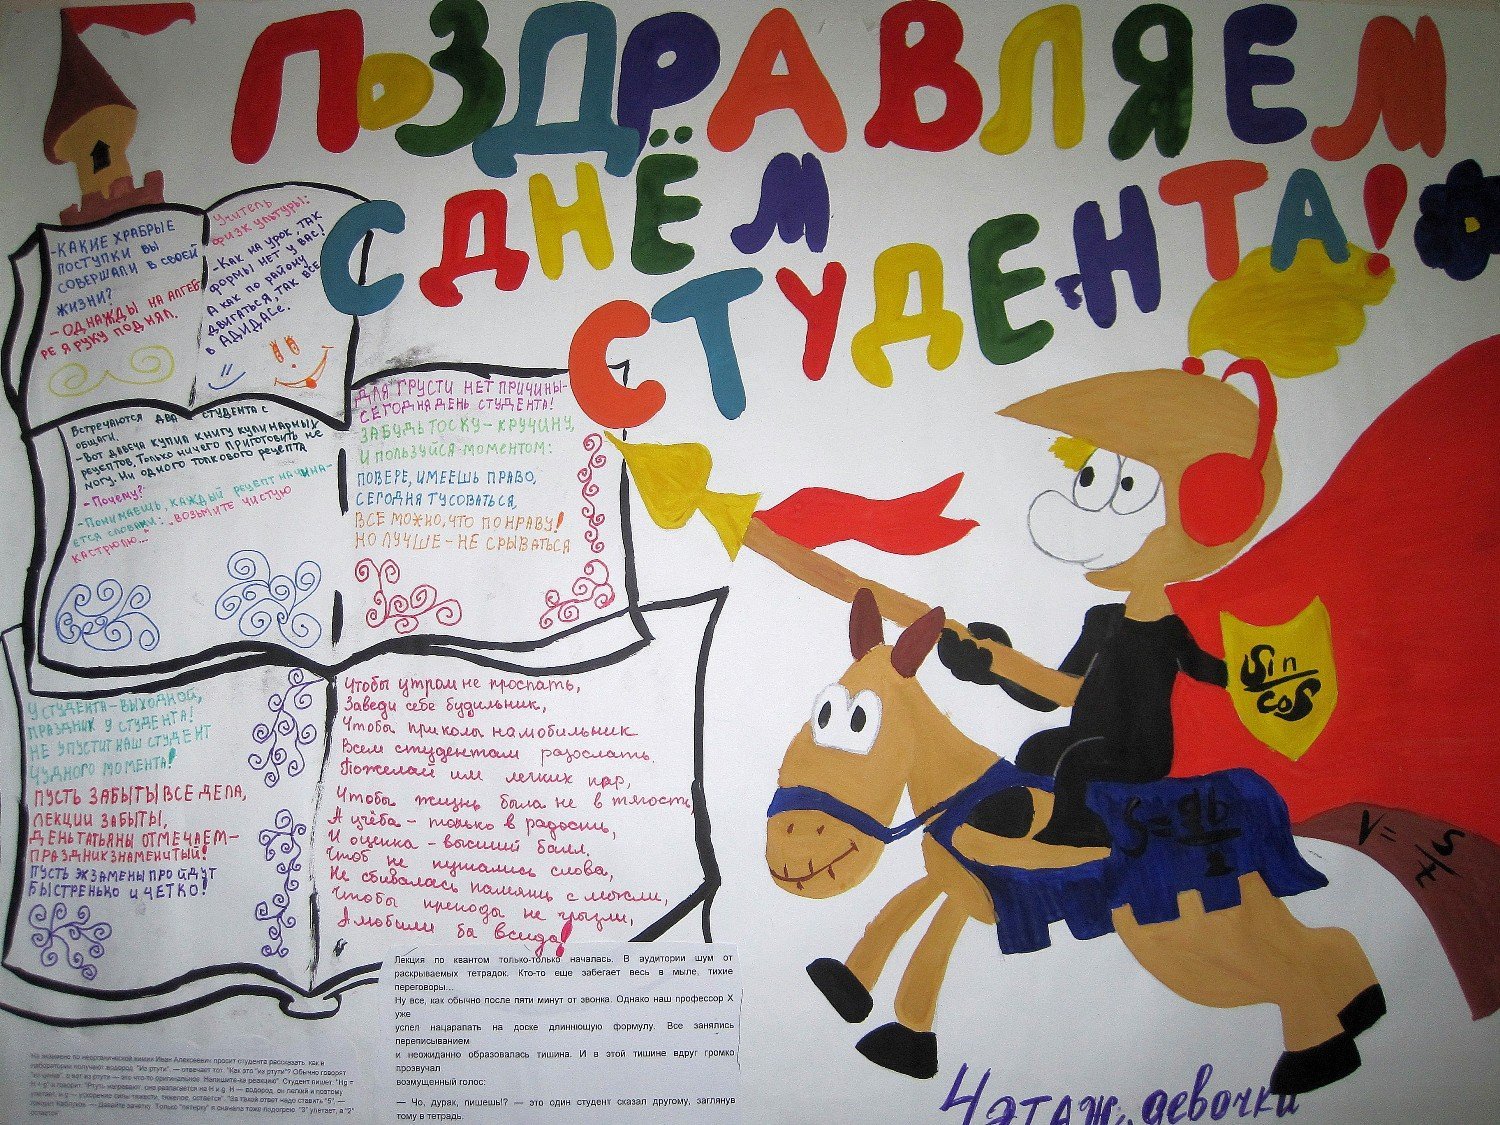 ПОЗДРАВЛЯЕМ
С ДНЁМ
СТУДЕНТА!
-КАКИЕ ХРАБРЫЕ
ПОСТУПКИ ВЫ
СОВЕРШАЛИ В СВОЕЙ
ЖИЗНИ?
- ОДНАЖДЫ НА АЛГЕБ
РЕ Я РУКУ ПОДНЯЛ.
Учитель
физкультуры:
- Как на урок, так
формы нет у вас!
А как по району
двигаться, так все
в АДИДАСе.
Встречаются два студента с
общаги.
- Вот давеча купил книгу кулинарных
рецептов. Только ничего приготовить не
могу. Ни одного толкового рецепта
- Почему?
- Понимаешь, каждый рецепт начина-
ется словами: „возьмите чистую
кастрюлю..."
ДЛЯ ГРУСТИ НЕТ ПРИЧИНЫ-
СЕГОДНЯ ДЕНЬ СТУДЕНТА!
ЗАБУДЬ ТОСКУ - КРУЧИНУ,
И ПОЛЬЗУЙСЯ МОМЕНТОМ:
ПОВЕРЕ, ИМЕЕШЬ ПРАВО,
СЕГОДНЯ ТУСОВАТЬСЯ,
ВСЕ МОЖНО, ЧТО ПО НРАВУ!
НО ЛУЧШЕ - НЕ СРЫВАТЬСЯ
У СТУДЕНТА - ВЫХОДНОЙ,
ПРАЗДНИК У СТУДЕНТА!
НЕ УПУСТИТ НАШ СТУДЕНТ
ЧУДНОГО МОМЕНТА!
ПУСТЬ ЗАБЫТЫ ВСЕ ДЕЛА,
ЛЕКЦИИ ЗАБЫТЫ,
ДЕНЬ ТАТЬЯНЫ ОТМЕЧАЕМ -
ПРАЗДНИК ЗНАМЕНИТЫЙ!
ПУСТЬ ЭКЗАМЕНЫ ПРОЙДУТ
БЫСТРЕНЬКО И ЧЕТКО!
Чтобы утром не проспать,
Заведи себе будильник,
Чтобы приколы на мобильник
Всем студентам разослать.
Пожелаем им легких пар,
Чтобы жизнь была не в тягость,
А учёба - только в радость,
И оценка - высший балл.
Чтоб не путались слова,
Не сбивалась память с мысли,
Чтобы преподы не грызли,
А любили бы всегда!
Sin
cos
S=ab
2
V= S/t
Лекция по квантом только-только началась. В аудитории шум от
раскрываемых тетрадок. Кто-то еще забегает весь в мыле, тихие
переговоры...
Ну все, как обычно после пяти минут от звонка. Однако наш профессор X
уже
успел нацарапать на доске длиннющую формулу. Все занялись
переписыванием
и неожиданно образовалась тишина. И в этой тишине вдруг громко
прозвучал
возмущенный голос:
— Чо, дурак, пишешь!? — это один студент сказал другому, заглянув
тому в тетрадь.
На экзамене по неорганической химии Иван Алексеевич просит студента рассказать, как в
лаборатории получают водород. "Из ртути", — отвечает тот. "Как это "из ртути"? Обычно говорят
4 этаж, девочки